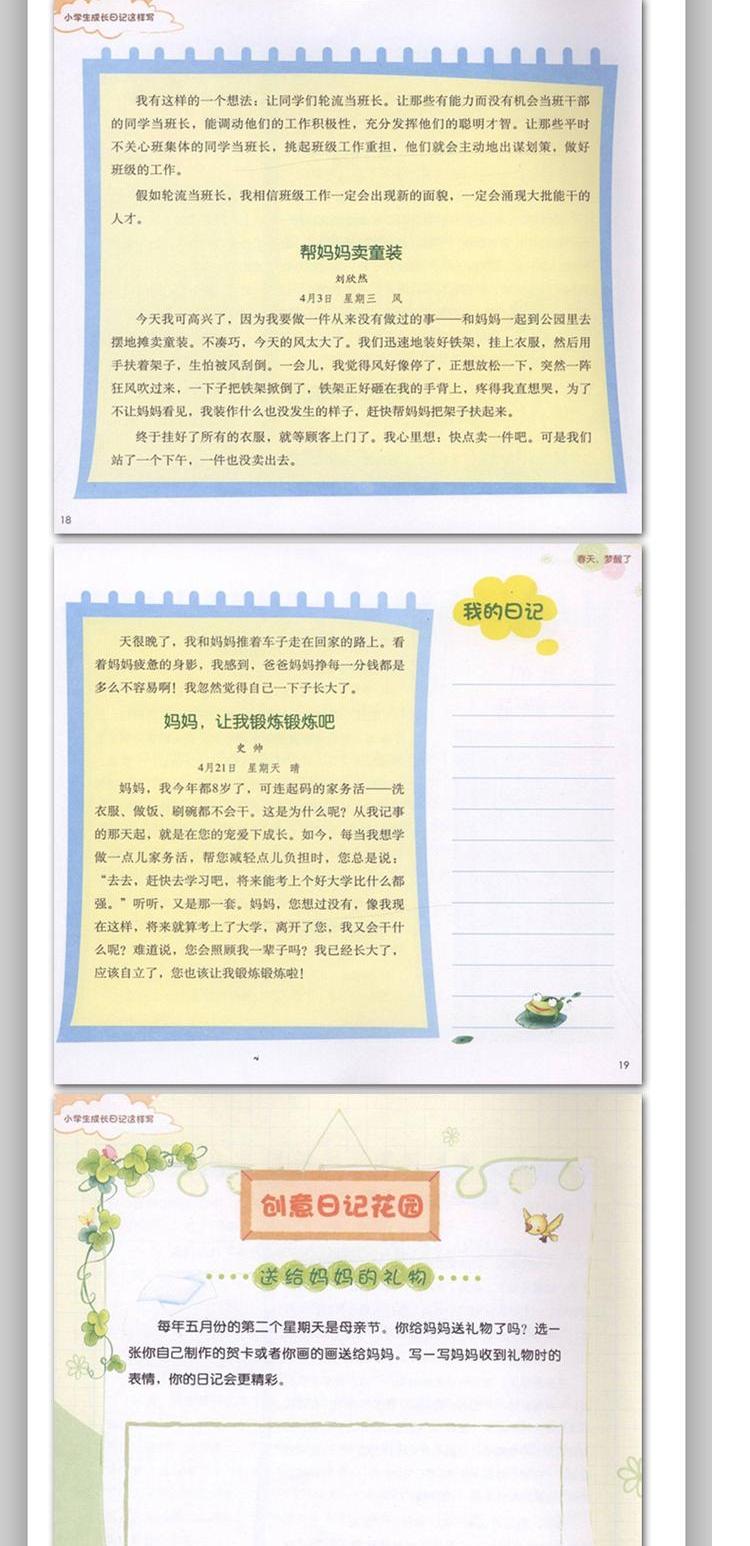 小学生成长日记这样写
我有这样的一个想法：让同学们轮流当班长。让那些有能力而没有机会当班干部
的同学当班长，能调动他们的工作积极性，充分发挥他们的聪明才智。让那些平时
不关心班集体的同学当班长，挑起班级工作重担，他们就会主动地出谋划策，做好
班级的工作。
假如轮流当班长，我相信班级工作一定会出现新的面貌，一定会涌现大批能干的
人才。
帮妈妈卖童装
刘欣然
4月3日 星期三 风
今天我可高兴了，因为我要做一件从来没有做过的事——和妈妈一起到公园里去
摆地摊卖童装。不凑巧，今天的风太大了。我们迅速地装好铁架，挂上衣服，然后用
手扶着架子，生怕被风刮倒。一会儿，我觉得风好像停了，正想放松一下，突然一阵
狂风吹过来，一下子把铁架掀倒了，铁架正好砸在我的手背上，疼得我直想哭，为了
不让妈妈看见，我装作什么也没发生的样子，赶快帮妈妈把架子扶起来。
终于挂好了所有的衣服，就等顾客上门了。我心里想：快点卖一件吧。可是我们
站了一个下午，一件也没卖出去。
18
春天，梦醒了
我的日记
天很晚了，我和妈妈推着车子走在回家的路上。看
着妈妈疲惫的身影，我感到，爸爸妈妈挣每一分钱都是
多么不容易啊！我忽然觉得自己一下子长大了。
妈妈，让我锻炼锻炼吧
史 帅
4月21日 星期天 晴
妈妈，我今年都8岁了，可连起码的家务活——洗
衣服、做饭、刷碗都不会干。这是为什么呢？从我记事
的那天起，就是在您的宠爱下成长。如今，每当我想学
做一点儿家务活，帮您减轻点儿负担时，您总是说：
“去去，赶快去学习吧，将来能考上个好大学比什么都
强。”听听，又是那一套。妈妈，您想过没有，像我现
在这样，将来就算考上了大学，离开了您，我又会干什
么呢？难道说，您会照顾我一辈子吗？我已经长大了，
应该自立了，您也该让我锻炼锻炼啦！
19
小学生成长日记这样写
创意日记花园
送给妈妈的礼物
每年五月份的第二个星期天是母亲节。你给妈妈送礼物了吗？选一
张你自己制作的贺卡或者你画的画送给妈妈。写一写妈妈收到礼物时的
表情，你的日记会更精彩。